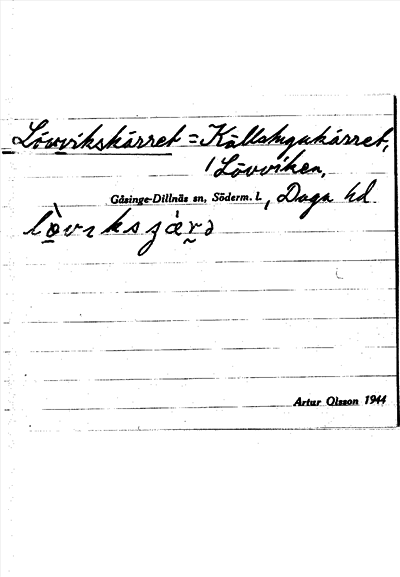 Lövvikskärret = Källängskärret,
i Lövviken,
Gåsinge-Dillnäs sn, Söderm. l., Daga hd.
Artur Olsson 1944